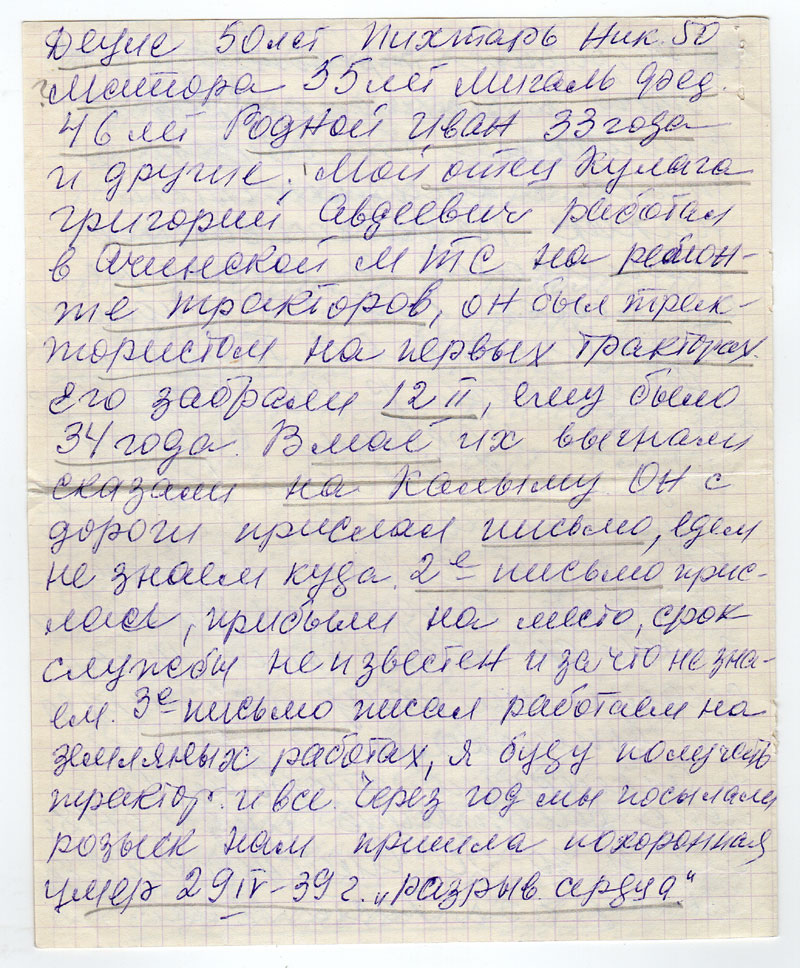 Деулс 50 лет Пихтарь Ник. 50
Мотора 35 лет Мигаль Фед.
46 лет Родной Иван 33 года
и другие. Мой отец Кулага
Григорий Авдеевич работал
в Ачинской МТС на ремон-
те тракторов, он был трак-
тористом на первых тракторах.
Его забрали 12 II, ему было
34 года. В мае их выгнали
сказали на Колыму. Он с
дороги прислал письмо, едем
не знаем куда. 2е письмо прис-
лал, прибыли на место, срок
службы неизвестен и за что не зна-
ем. 3е письмо писал работаем на
земляных работах, я буду получать
трактор. и все. Через год мы посылали
розыск нам пришла похоронная
умер 29 IV-39 г. „разрыв сердца"